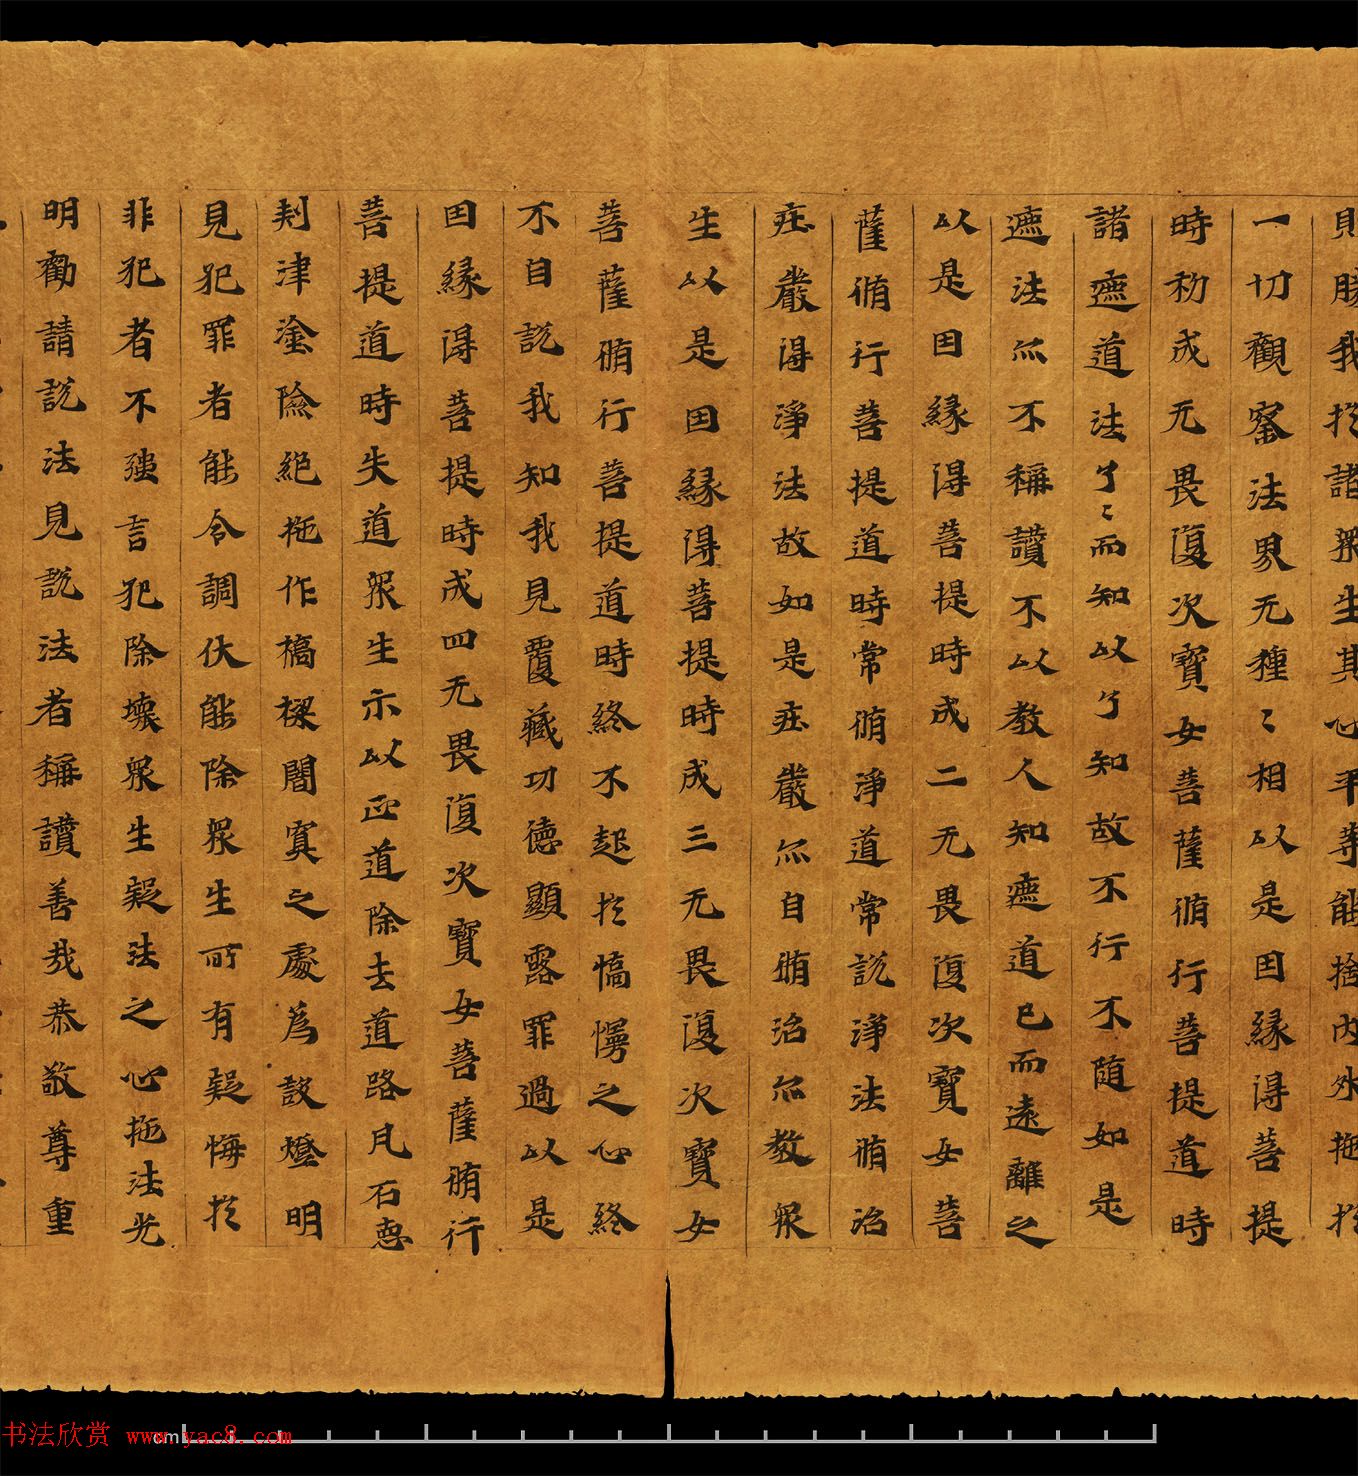 則勝我於諸衆生其心平等能捨內外施於
一切觀察法界无種〻相以是因緣得菩提
時初成无畏復次寶女菩薩脩行菩提道時
諸遮道法了〻而知以了知故不行不隨如是
遮法亦不稱讚不以教人知遮道已而遠離之
以是因緣得菩提時成二无畏復次寶女菩
薩脩行菩提道時常脩淨道常說淨法脩治
莊嚴得淨法故如是莊嚴亦自脩治亦教衆
生以是因緣得菩提時成三无畏復次寶女
菩薩脩行菩提道時終不起於憍慢之心終
不自說我知我見覆藏功德顯露罪過以是
因緣得菩提時成四无畏復次寶女菩薩脩行
菩提道時失道衆生示以正道除去道路凡石惡
刾津塗險絕施作橋樑闇寘之處為設燈明
見犯罪者能令調伏能除衆生所有疑悔於
非犯者不強言犯除壞衆生疑法之心施法光
明勸請說法見說法者稱讚善哉恭敬尊重
书法欣赏 www.yac8.com
cm